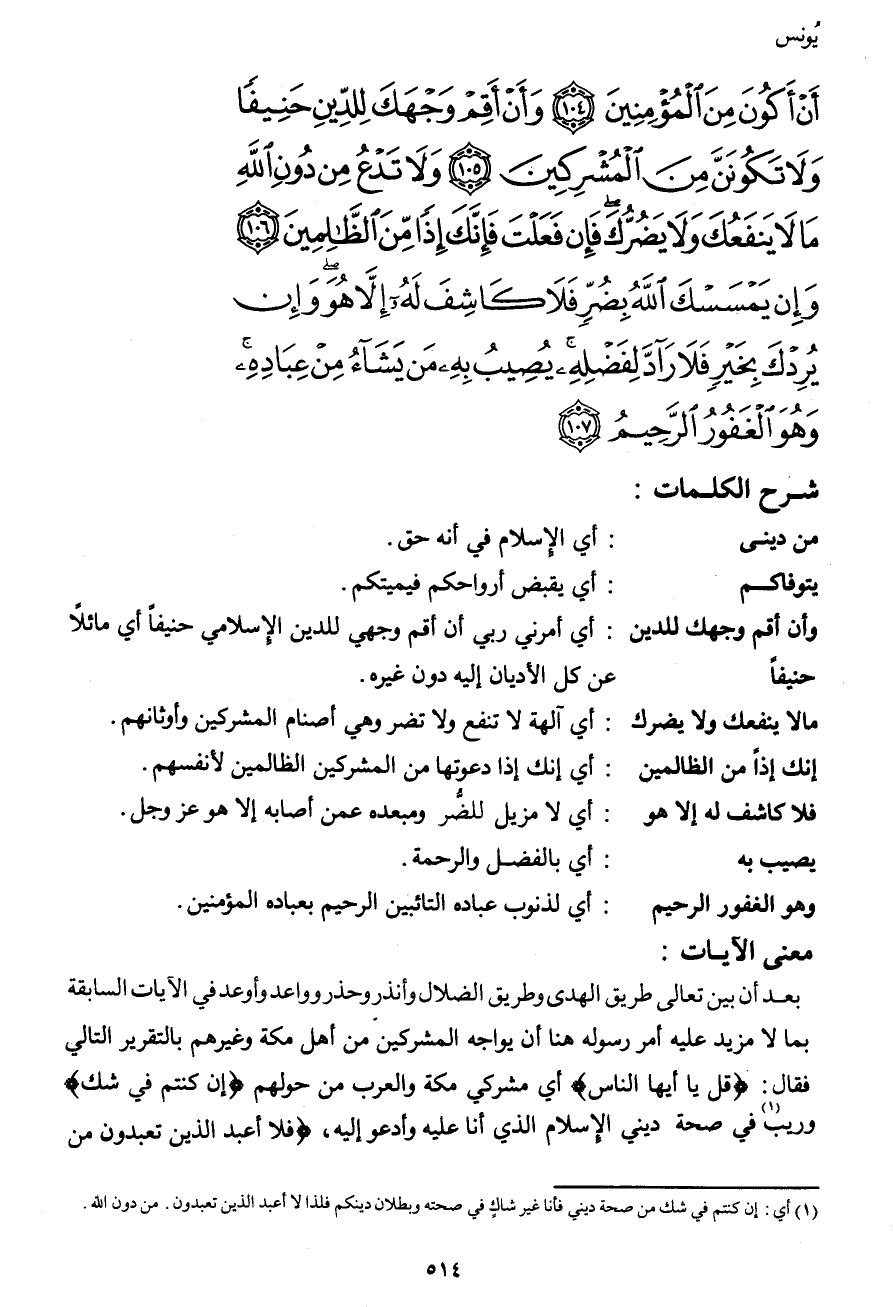 يُونس
أَنْ أَكُونَ مِنَ ٱلْمُؤْمِنِينَ ١٠٤ وَأَنْ أَقِمْ وَجْهَكَ لِلدِّينِ حَنِيفًا
وَلَا تَكُونَنَّ مِنَ ٱلْمُشْرِكِينَ ١٠٥ وَلَا تَدْعُ مِن دُونِ ٱللَّهِ
مَا لَا يَنفَعُكَ وَلَا يَضُرُّكَ ۖ فَإِن فَعَلْتَ فَإِنَّكَ إِذًا مِّنَ ٱلظَّٰلِمِينَ ١٠٦
وَإِن يَمْسَسْكَ ٱللَّهُ بِضُرٍّ فَلَا كَاشِفَ لَهُۥٓ إِلَّا هُوَ ۖ وَإِن
يُرِدْكَ بِخَيْرٍ فَلَا رَآدَّ لِفَضْلِهِۦ ۚ يُصِيبُ بِهِۦ مَن يَشَآءُ مِنْ عِبَادِهِۦ ۚ
وَهُوَ ٱلْغَفُورُ ٱلرَّحِيمُ ١٠٧
شرح الكلمات :
من دينى : أي الإسلام في أنه حق .
يتوفاكم : أي يقبض أرواحكم فيميتكم .
وأن أقم وجهك للدين : أي أمرني ربي أن أقم وجهي للدين الإسلامي حنيفاً أي مائلاً
حنيفاً عن كل الأديان إليه دون غيره .
مالا ينفعك ولا يضرك : أي آلهة لا تنفع ولا تضر وهي أصنام المشركين وأوثانهم .
إنك إذاً من الظالمين : أي إنك إذا دعوتها من المشركين الظالمين لأنفسهم .
فلا كاشف له إلا هو : أي لا مزيل للضُّر ومبعده عمن أصابه إلا هو عز وجل .
يصيب به : أي بالفضل والرحمة .
وهو الغفور الرحيم : أي لذنوب عباده التائبين الرحيم بعباده المؤمنين .
معنى الآيات :
بعد أن بين تعالى طريق الهدى وطريق الضلال وأنذر وحذر وواعد وأوعد في الآيات السابقة
بما لا مزيد عليه أمر رسوله هنا أن يواجه المشركين من أهل مكة وغيرهم بالتقرير التالي
فقال : ﴿قل يا أيها الناس﴾ أي مشركي مكة والعرب من حولهم ﴿إن كنتم في شك﴾
وريب(١) في صحة ديني الإسلام الذي أنا عليه وأدعو إليه ، ﴿فلا أعبد الذين تعبدون من
(١) أي : إن كنتم في شك من صحة ديني فأنا غير شاكٍ في صحته وبطلان دينكم فلذا لا أعبد الذين تعبدون . من دون الله .
٥١٤